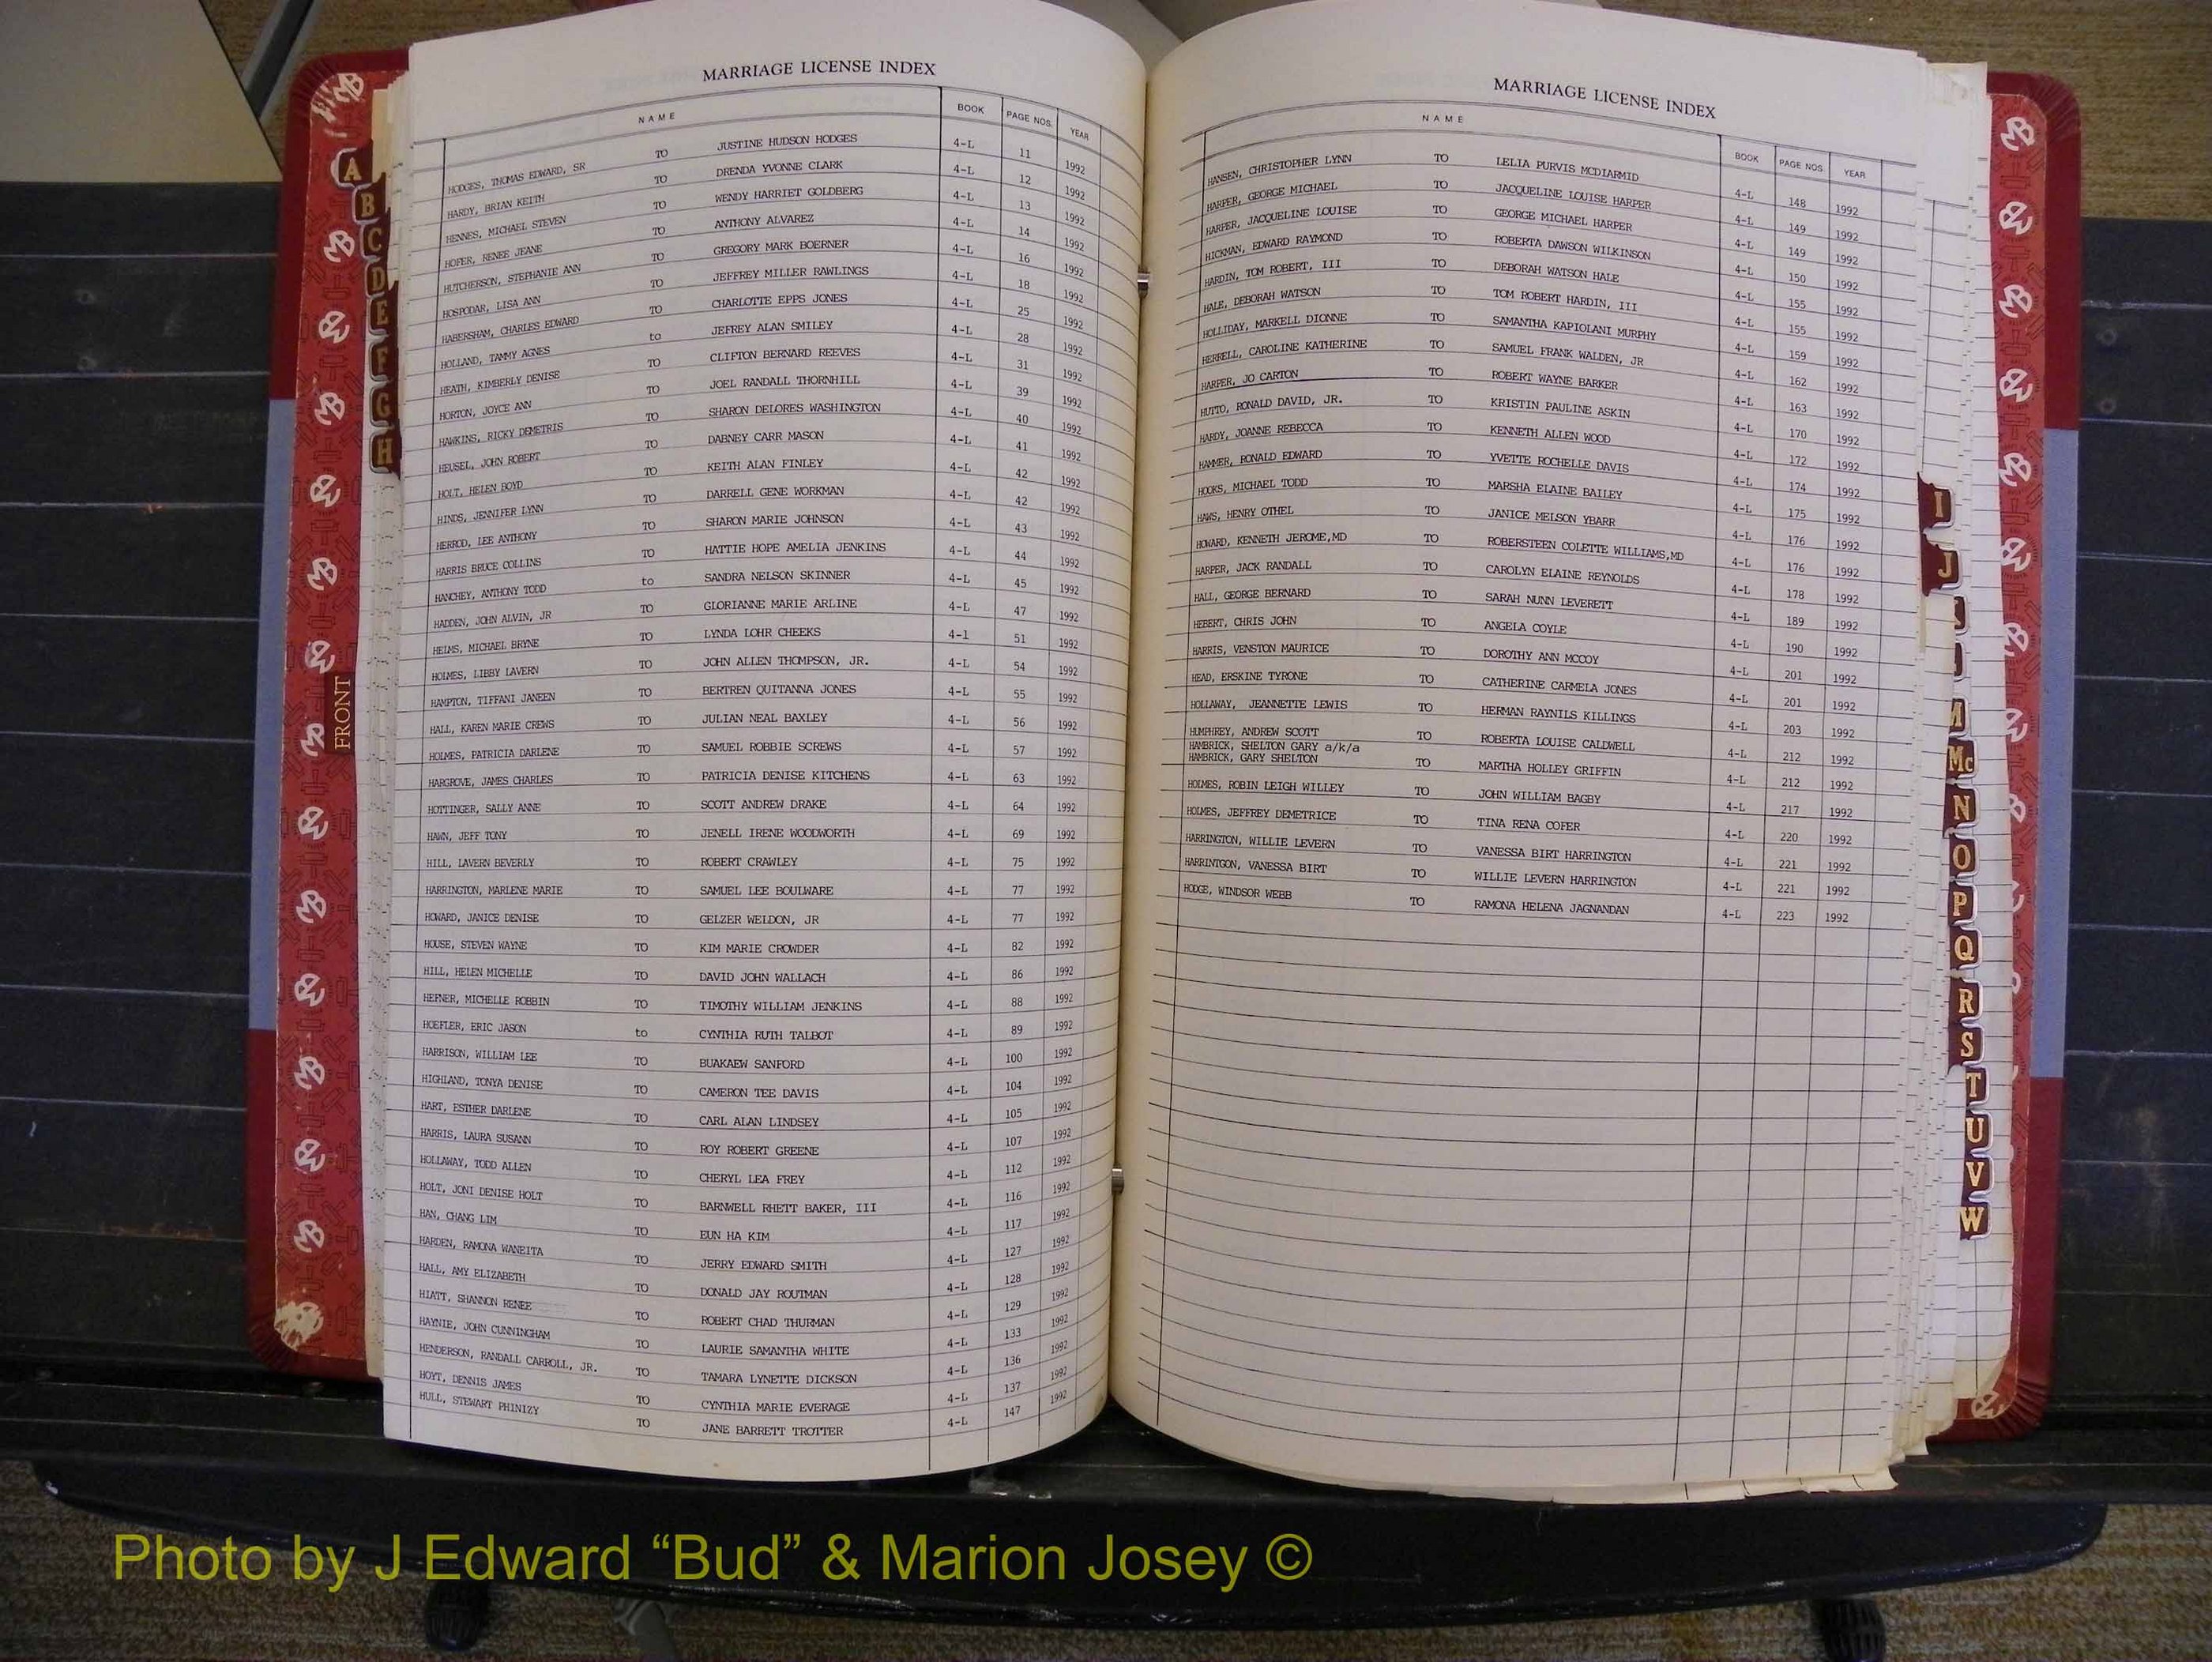 MARRIAGE LICENSE INDEX
NAME BOOK PAGE NOS. YEAR
HODGES, THOMAS EDWARD, SR TO JUSTINE HUDSON HODGES 4-L 11 1992
HARDY, BRIAN KEITH TO DRENDA YVONNE CLARK 4-L 12 1992
HENNES, MICHAEL STEVEN TO WENDY HARRIET GOLDBERG 4-L 13 1992
HOFER, RENEE JEANE TO ANTHONY ALVAREZ 4-L 14 1992
HUTCHERSON, STEPHANIE ANN TO GREGORY MARK BOERNER 4-L 16 1992
HOSPODAR, LISA ANN TO JEFFREY MILLER RAWLINGS 4-L 18 1992
HABERSHAM, CHARLES EDWARD TO CHARLOTTE EPPS JONES 4-L 25 1992
HOLLAND, TAMMY AGNES to JEFREY ALAN SMILEY 4-L 28 1992
HEATH, KIMBERLY DENISE TO CLIFTON BERNARD REEVES 4-L 31 1992
HORTON, JOYCE ANN TO JOEL RANDALL THORNHILL 4-L 39 1992
HAWKINS, RICKY DEMETRIS TO SHARON DELORES WASHINGTON 4-L 40 1992
HEUSEL, JOHN ROBERT TO DABNEY CARR MASON 4-L 41 1992
HOLT, HELEN BOYD TO KEITH ALAN FINLEY 4-L 42 1992
HINDS, JENNIFER LYNN TO DARRELL GENE WORKMAN 4-L 42 1992
HERROD, LEE ANTHONY TO SHARON MARIE JOHNSON 4-L 43 1992
HARRIS BRUCE COLLINS TO HATTIE HOPE AMELIA JENKINS 4-L 44 1992
HANCHEY, ANTHONY TODD to SANDRA NELSON SKINNER 4-L 45 1992
HADDEN, JOHN ALVIN, JR TO GLORIANNE MARIE ARLINE 4-L 47 1992
HELMS, MICHAEL BRYNE TO LYNDA LOHR CHEEKS 4-1 51 1992
HOLMES, LIBBY LAVERN TO JOHN ALLEN THOMPSON, JR. 4-L 54 1992
HAMPTON, TIFFANI JANEEN TO BERTREN QUITANNA JONES 4-L 55 1992
HALL, KAREN MARIE CREWS TO JULIAN NEAL BAXLEY 4-L 56 1992
HOLMES, PATRICIA DARLENE TO SAMUEL ROBBIE SCREWS 4-L 57 1992
HARGROVE, JAMES CHARLES TO PATRICIA DENISE KITCHENS 4-L 63 1992
HOTTINGER, SALLY ANNE TO SCOTT ANDREW DRAKE 4-L 64 1992
HAWN, JEFF TONY TO JENELL IRENE WOODWORTH 4-L 69 1992
HILL, LAVERN BEVERLY TO ROBERT CRAWLEY 4-L 75 1992
HARRINGTON, MARLENE MARIE TO SAMUEL LEE BOULWARE 4-L 77 1992
HOWARD, JANICE DENISE TO GELZER WELDON, JR 4-L 77 1992
HOUSE, STEVEN WAYNE TO KIM MARIE CROWDER 4-L 82 1992
HILL, HELEN MICHELLE TO DAVID JOHN WALLACH 4-L 86 1992
HEFNER, MICHELLE ROBBIN TO TIMOTHY WILLIAM JENKINS 4-L 88 1992
HOEFLER, ERIC JASON to CYNTHIA RUTH TALBOT 4-L 89 1992
HARRISON, WILLIAM LEE TO BUAKAEW SANFORD 4-L 100 1992
HIGHLAND, TONYA DENISE TO CAMERON TEE DAVIS 4-L 104 1992
HART, ESTHER DARLENE TO CARL ALAN LINDSEY 4-L 105 1992
HARRIS, LAURA SUSANN TO ROY ROBERT GREENE 4-L 107 1992
HOLLAWAY, TODD ALLEN TO CHERYL LEA FREY 4-L 112 1992
HOLT, JONI DENISE HOLT TO BARNWELL RHETT BAKER, III 4-L 116 1992
HAN, CHANG LIM TO EUN HA KIM 4-L 117 1992
HARDEN, RAMONA WANEITA TO JERRY EDWARD SMITH 4-L 127 1992
HALL, AMY ELIZABETH TO DONALD JAY ROUTMAN 4-L 128 1992
HIATT, SHANNON RENEE TO ROBERT CHAD THURMAN 4-L 129 1992
HAYNIE, JOHN CUNNINGHAM TO LAURIE SAMANTHA WHITE 4-L 133 1992
HENDERSON, RANDALL CARROLL, JR. TO TAMARA LYNETTE DICKSON 4-L 136 1992
HOYT, DENNIS JAMES TO CYNTHIA MARIE EVERAGE 4-L 137 1992
HULL, STEWART PHINIZY TO JANE BARRETT TROTTER 4-L 147 1992
MARRIAGE LICENSE INDEX
NAME BOOK PAGE NOS YEAR
HANSEN, CHRISTOPHER LYNN TO LELIA PURVIS MCDIARMID 4-L 148 1992
HARPER, GEORGE MICHAEL TO JACQUELINE LOUISE HARPER 4-L 149 1992
HARPER, JACQUELINE LOUISE TO GEORGE MICHAEL HARPER 4-L 149 1992
HICKMAN, EDWARD RAYMOND TO ROBERTA DAWSON WILKINSON 4-L 150 1992
HARDIN, TOM ROBERT, III TO DEBORAH WATSON HALE 4-L 155 1992
HALE, DEBORAH WATSON TO TOM ROBERT HARDIN, III 4-L 155 1992
HOLLIDAY, MARKELL DIONNE TO SAMANTHA KAPIOLANI MURPHY 4-L 159 1992
HERRELL, CAROLINE KATHERINE TO SAMUEL FRANK WALDEN, JR 4-L 162 1992
HARPER, JO CARTON TO ROBERT WAYNE BARKER 4-L 163 1992
HUTTO, RONALD DAVID, JR. TO KRISTIN PAULINE ASKIN 4-L 170 1992
HARDY, JOANNE REBECCA TO KENNETH ALLEN WOOD 4-L 172 1992
HAMMER, RONALD EDWARD TO YVETTE ROCHELLE DAVIS 4-L 174 1992
HOOKS, MICHAEL TODD TO MARSHA ELAINE BAILEY 4-L 175 1992
HAWS, HENRY OTHEL TO JANICE MELSON YBARR 4-L 176 1992
HOWARD, KENNETH JEROME,MD TO ROBERSTEEN COLETTE WILLIAMS,MD 4-L 176 1992
HARPER, JACK RANDALL TO CAROLYN ELAINE REYNOLDS 4-L 178 1992
HALL, GEORGE BERNARD TO SARAH NUNN LEVERETT 4-L 189 1992
HEBERT, CHRIS JOHN TO ANGELA COYLE 4-L 190 1992
HARRIS, VENSTON MAURICE TO DOROTHY ANN MCCOY 4-L 201 1992
HEAD, ERSKINE TYRONE TO CATHERINE CARMELA JONES 4-L 201 1992
HOLLAWAY, JEANNETTE LEWIS TO HERMAN RAYNILS KILLINGS 4-L 203 1992
HUMPHREY, ANDREW SCOTT TO ROBERTA LOUISE CALDWELL 4-L 212 1992
HAMBRICK, SHELTON GARY a/k/a
HAMBRICK, GARY SHELTON TO MARTHA HOLLEY GRIFFIN 4-L 212 1992
HOLMES, ROBIN LEIGH WILLEY TO JOHN WILLIAM BAGBY 4-L 217 1992
HOLMES, JEFFREY DEMETRICE TO TINA RENA COFER 4-L 220 1992
HARRINGTON, WILLIE LEVERN TO VANESSA BIRT HARRINGTON 4-L 221 1992
HARRINTGON, VANESSA BIRT TO WILLIE LEVERN HARRINGTON 4-L 221 1992
HODGE, WINDSOR WEBB TO RAMONA HELENA JAGNANDAN 4-L 223 1992
A
B
C
D
E
F
G
H
FRONT
I
J
M
Mc
N
O
P
Q
R
S
T
U
V
W
Photo by J Edward “Bud” & Marion Josey ©